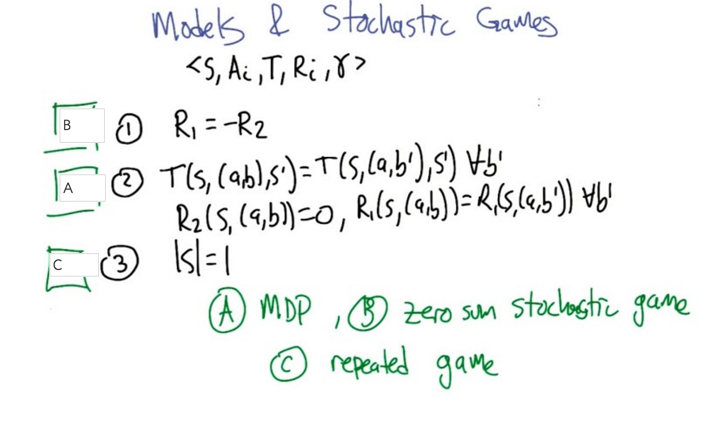 Models & Stochastic Games
<S, Ai, T, Ri, γ>
B ① R₁ = -R₂
A ② T(s,(a,b),s')=T(s,(a,b'),s') ∀b'
R₂(s,(a,b))=0, R₁(s,(a,b))=R₁(s,(a,b')) ∀b'
C ③ |S|=1
Ⓐ MDP, Ⓑ zero sum stochastic game
Ⓒ repeated game